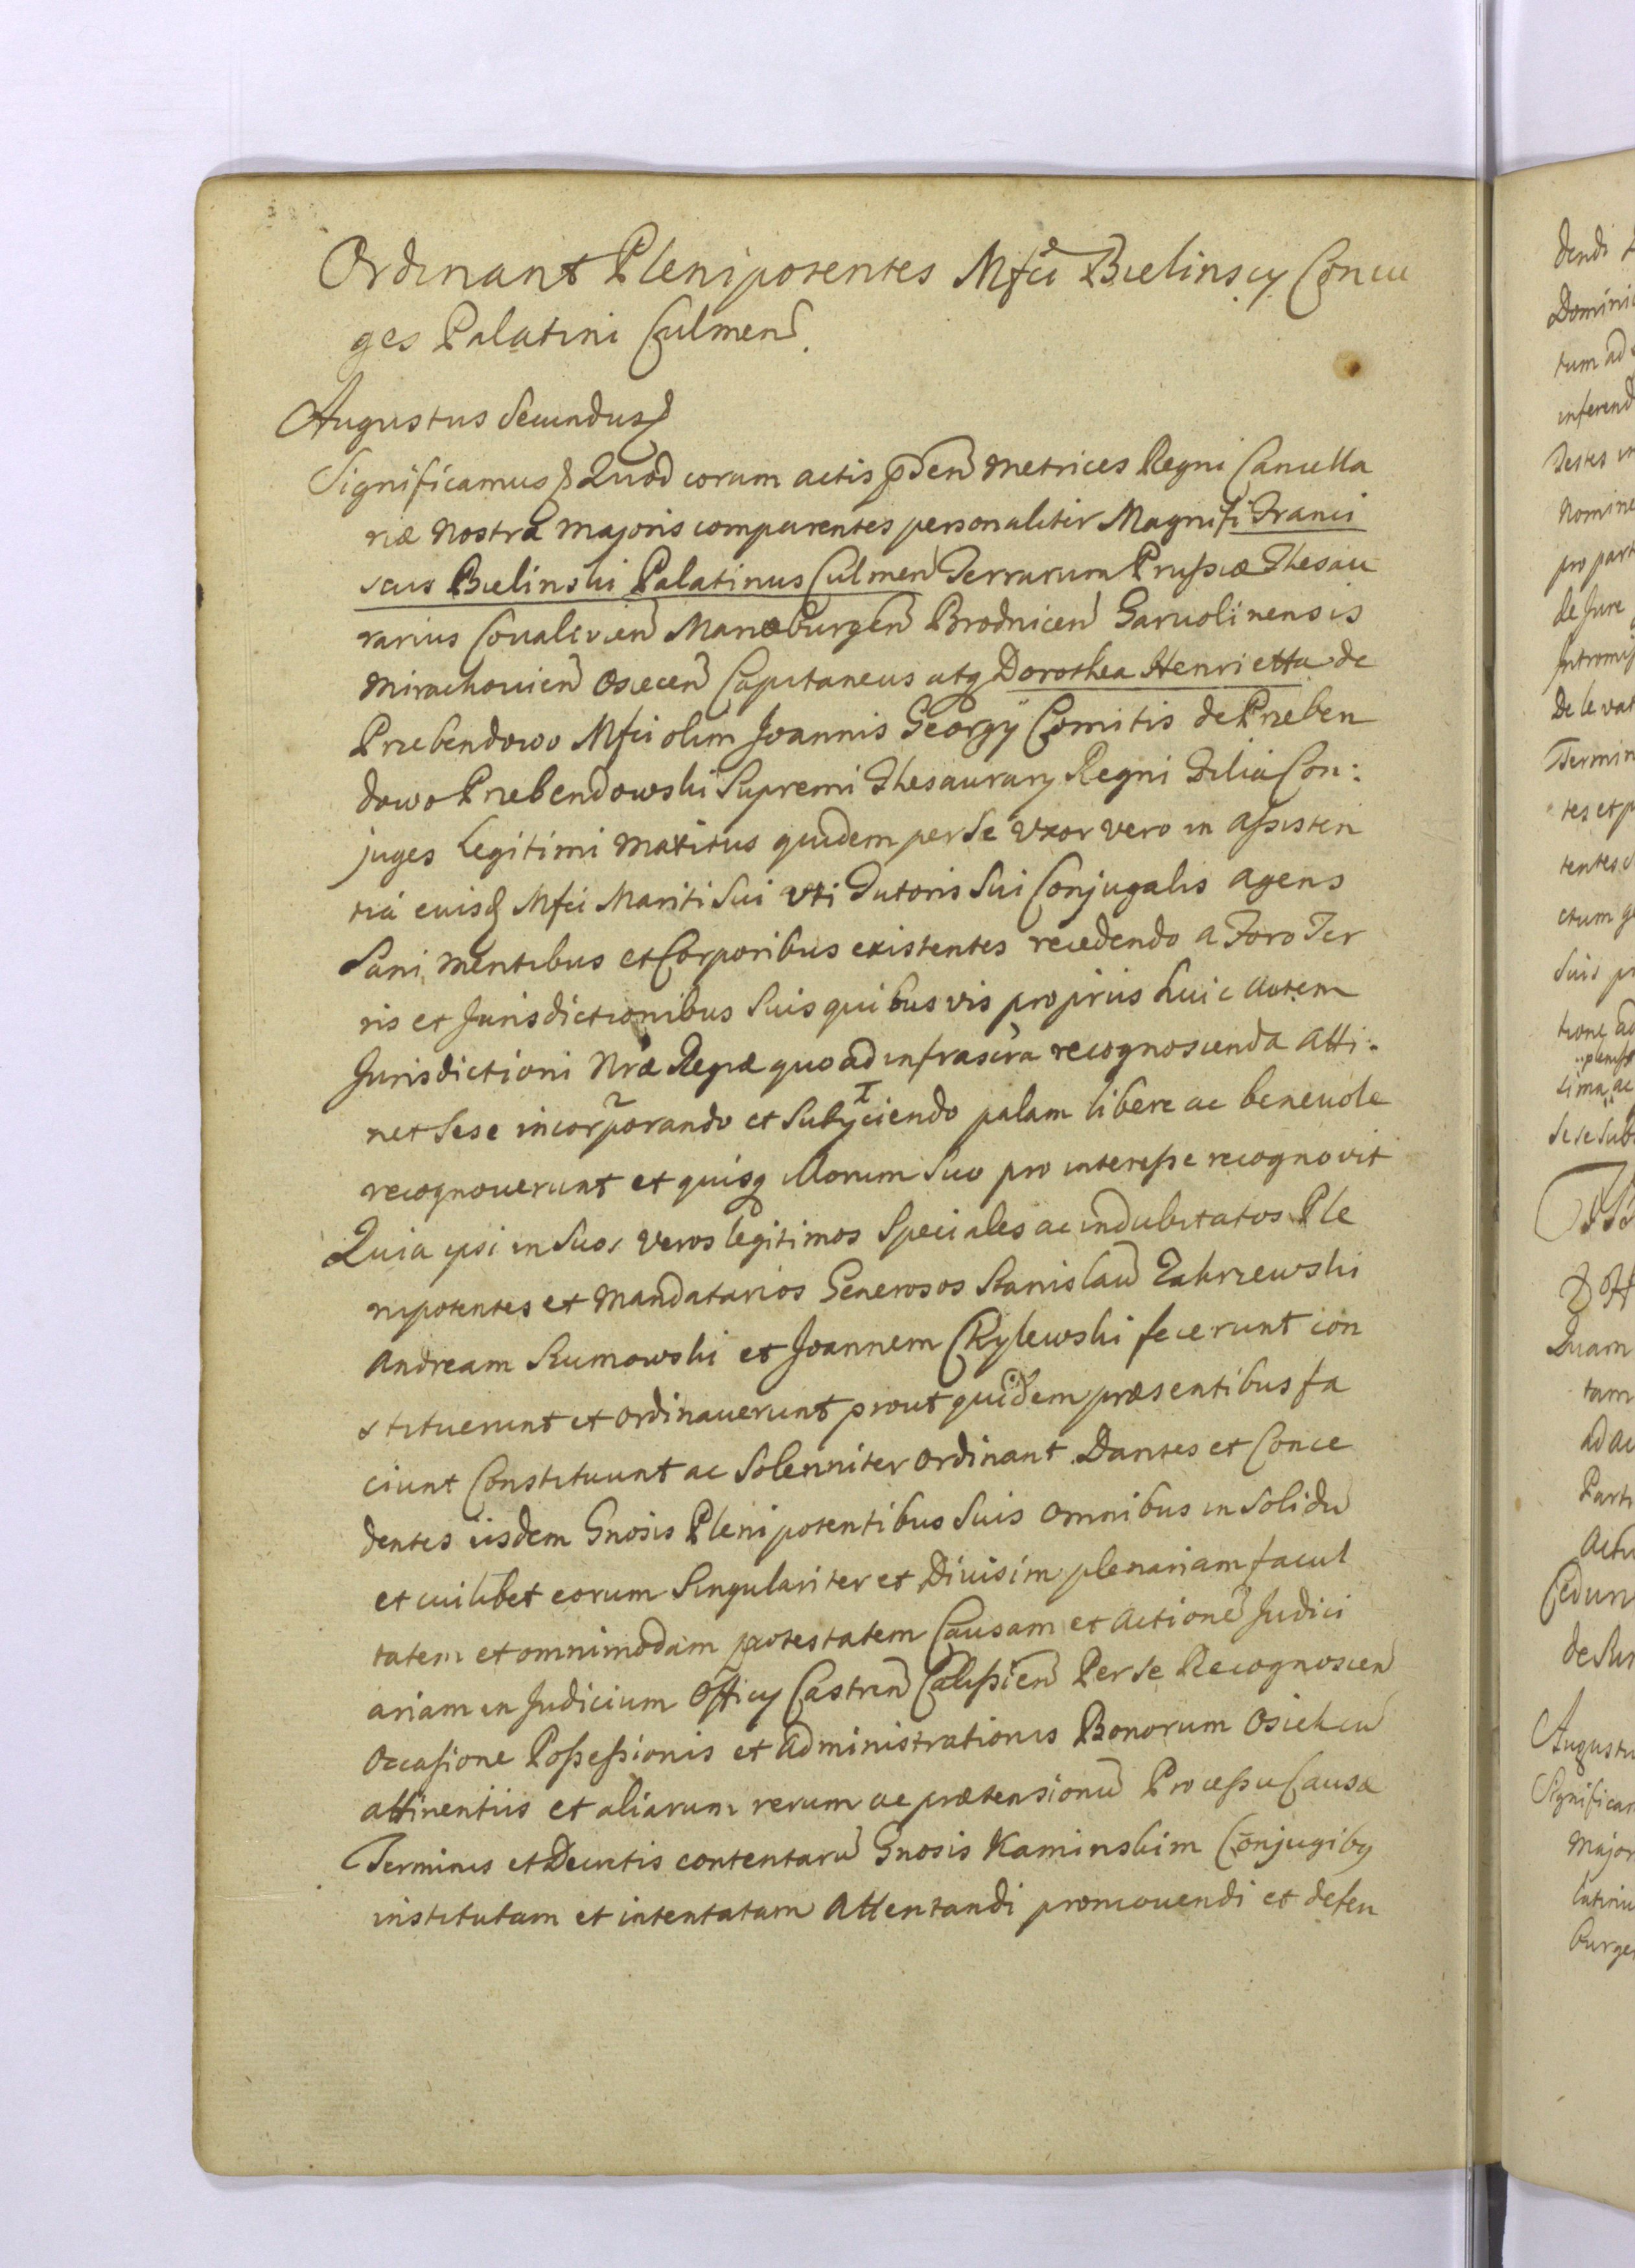 Ordinant Plenipotentes Mfci Bielinscy Coniu
ges Palatini Culmen
Augustus Secundus
Significamus Quod coram actis pñden Metrices Regni Cancella
riæ Nostra Majoris comparentes personaliter Magnifi Franci
scus Bielinski Palatinus Culmen Terrarum Prussiæ Thesau
rarius Covalevien Marieburgen Brodnicen Garvolinensis
Mirachovien Osiecen Capitaneus atq Dorothea Henrietta de
Przebendowo Mfci olim Joannis Georgÿ Comitis de Przeben
dowo Przebendowski Supremi Thesaurarÿ Regni Filia Con:
juges Legitimi Maritus quidem per Se Uxor vero in assisten
tia eiusd Mfci Mariti Sui uti Tutoris Sui Conjugalis agens
Sani mentibus et Corporibus existentes recedendo a Foro Ter
ris et Jurisdictionibus Suis quibusvis proprius huic autem
Jurisdictioni Nræ Regiæ quo ad infrascra recognoscenda atti:
net Sese incorporando et Subÿciendo palam libere ac benevole
recognoverunt et quisq illorum Suo pro interesse recognovit
Quia ipsi in Suos veros legitimos Speciales ac indubitatos Ple
nipotentes et Mandatarios Generosos Stanislau Zakrzewski
Andream Rumowski et Joannem Chylewski fecerunt con
stituerunt et ordinaverunt prout quidem præsentibus fa
ciunt Constituunt ac Solenniter ordinant Dantes et Conce
dentes iisdem Gnosis Plenipotentibus Suis omnibus in Solidu
et cuilibet eorum Singulariter et Divisim plenariam facul
tatem et omnimodam potestatem Causam et Actione Judici
ariam in Judicium Officy Castren Calissien Per Se Recognoscen
Occasione Possessionis et Administrationis Bonorum Osiek cu
attinentiis et aliarum rerum ac prætensionu Processu Causæ
Terminis et Decretis contentaru Gnosis Kaminskim Conjugibq
institutam et intentatam Attentandi promovendi et defen